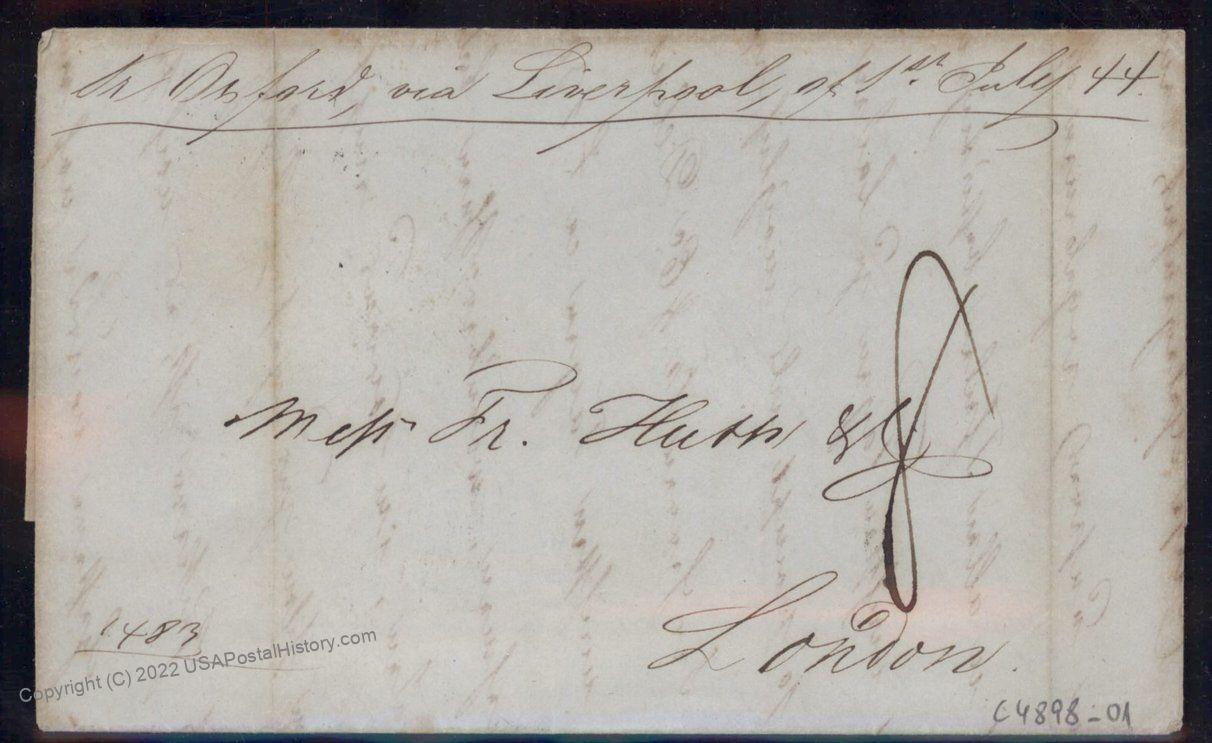 Oxford, via Liverpool, of 1st July 44.
Mess Fr. Huth & Co
8
London.
1483
Copyright (C) 2022 USAPostalHistory.com
C4898-01